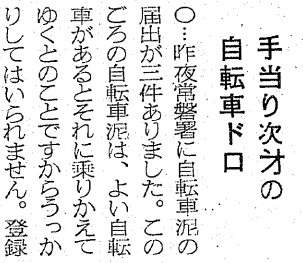 手当り次才の
自転車ドロ
○…昨夜常磐署に自転車泥の
届出が三件ありました。この
ごろの自転車泥は、よい自転
車があるとそれに乗りかえて
ゆくとのことですからうっか
りしてはいられません。登録